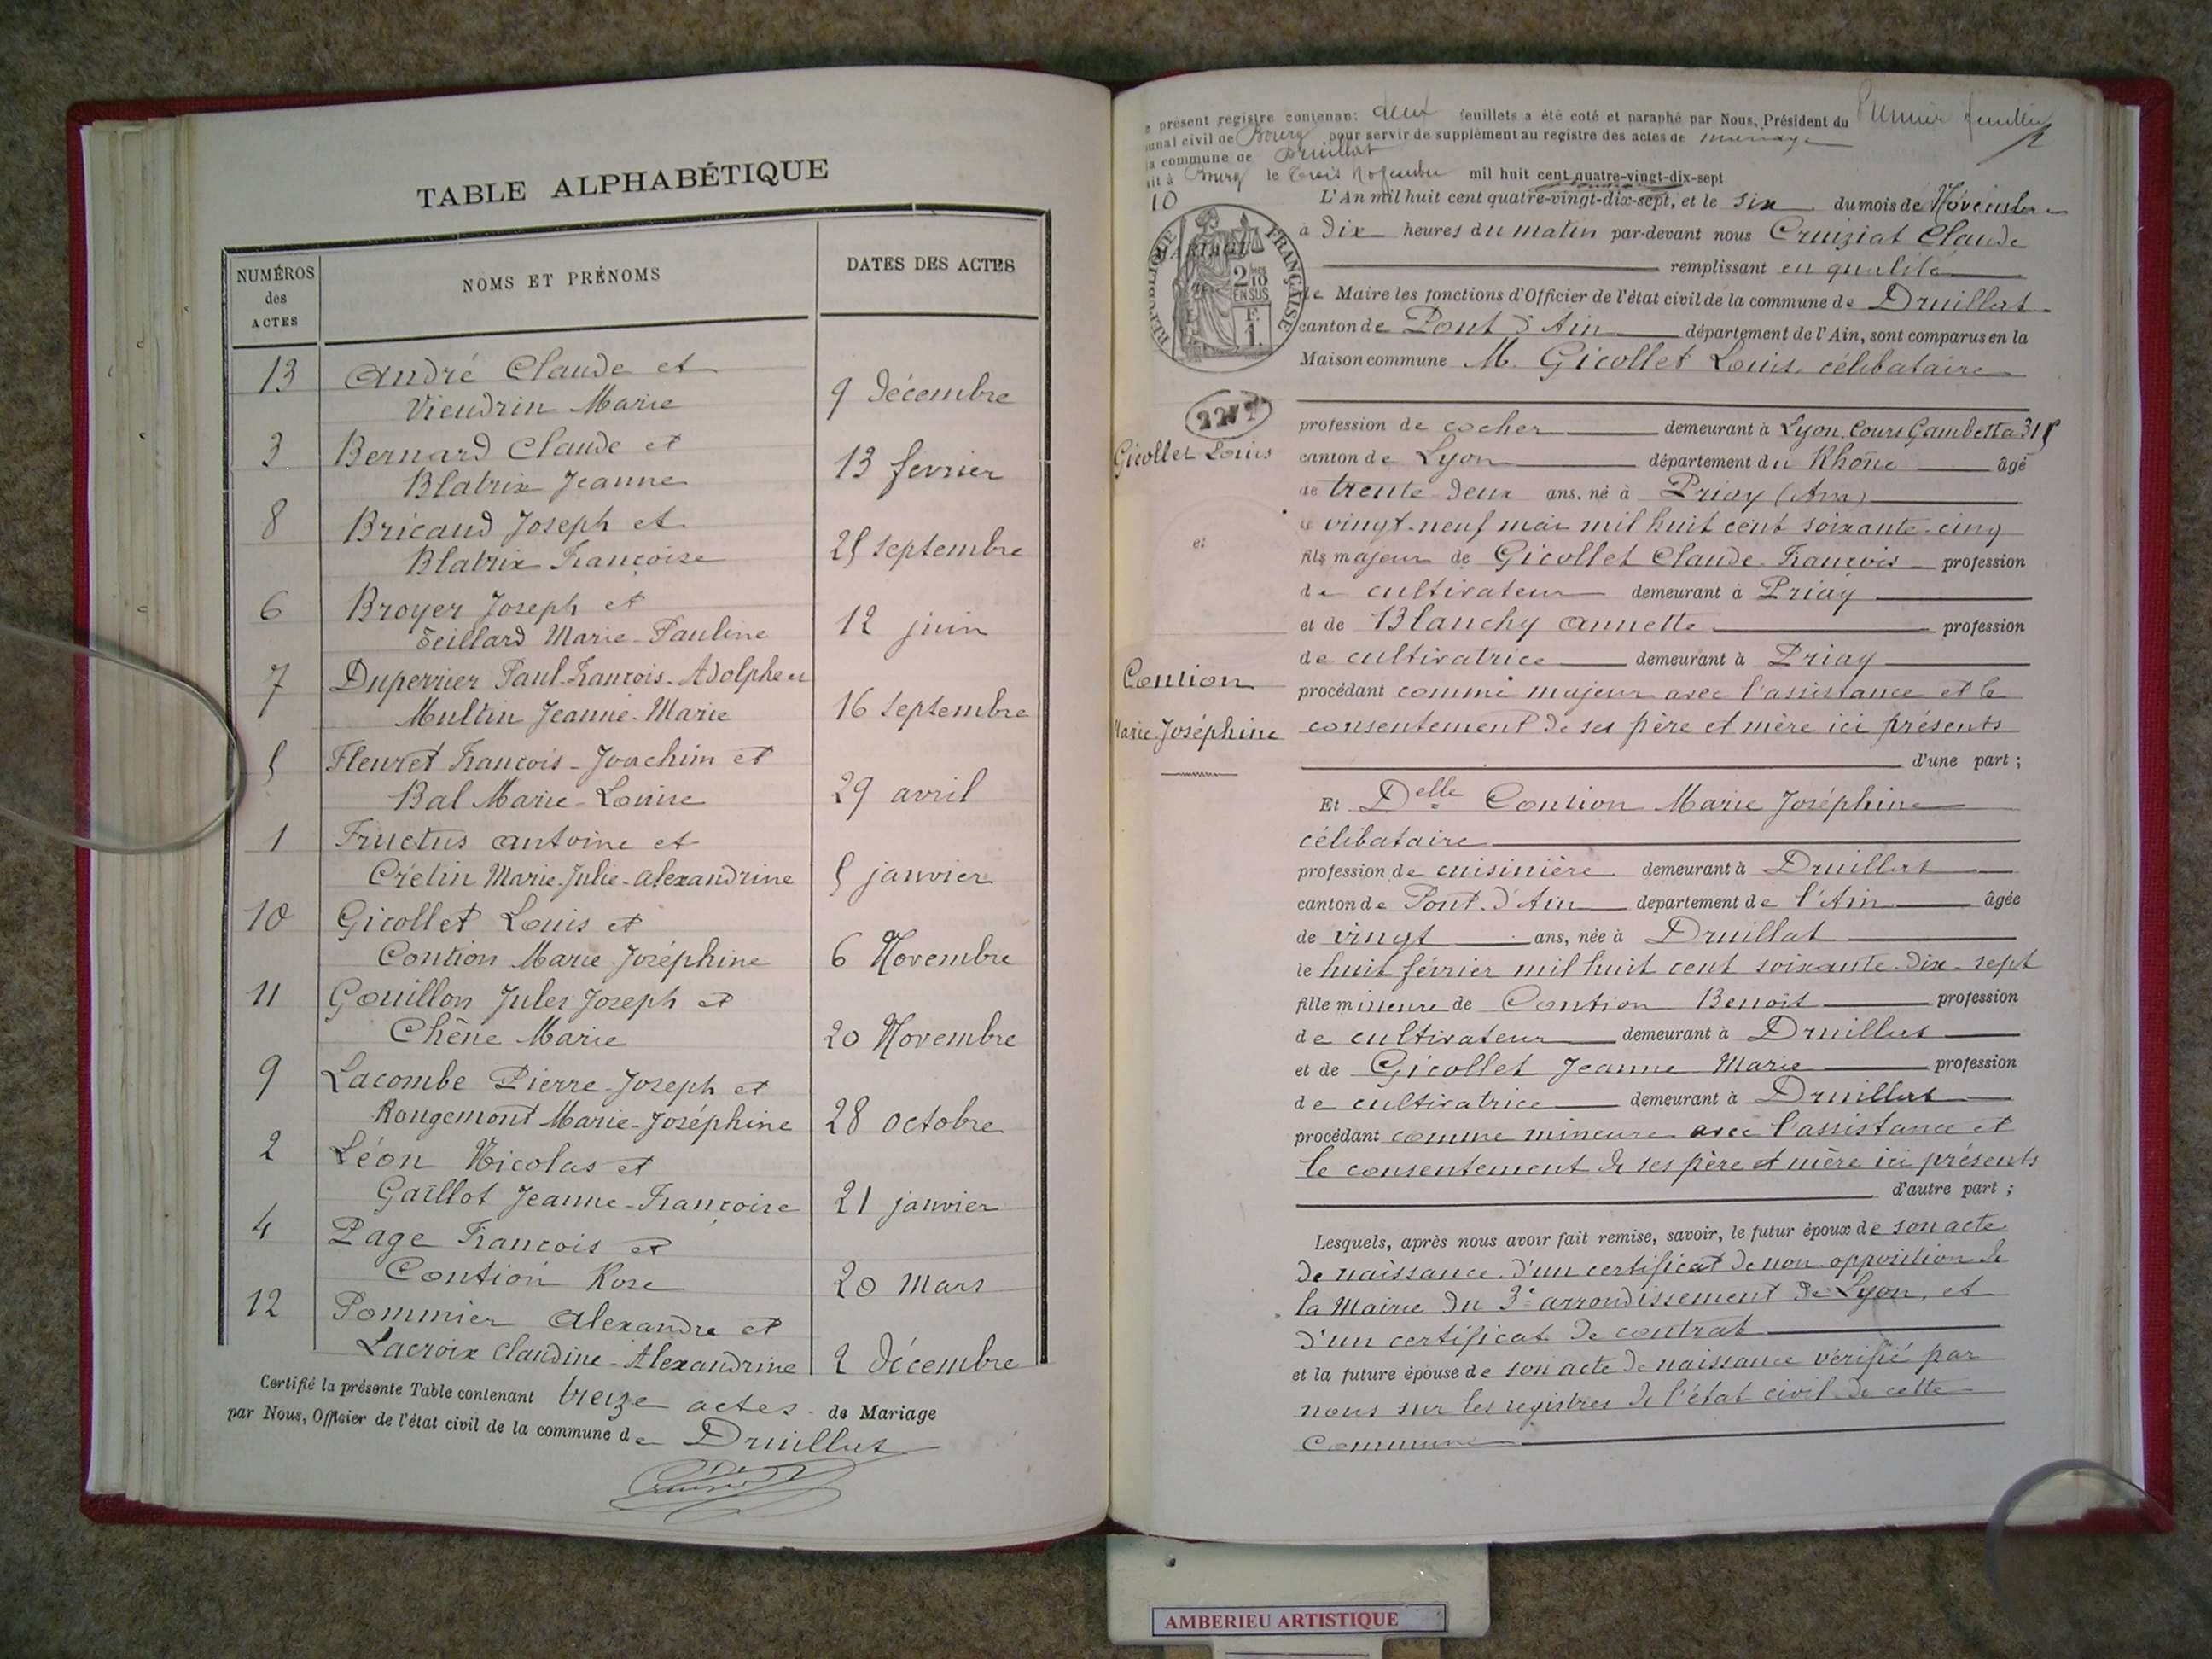 TABLE ALPHABÉTIQUE
NUMÉROS des ACTES
NOMS ET PRÉNOMS
DATES DES ACTES
13 André Claude et
Vieudrin Marie 9 Décembre
3 Bernard Claude et
Blatrix Jeanne 13 février
8 Bricaud Joseph et
Blatrix Françoise 25 septembre
6 Broyer Joseph et
Teillard Marie-Pauline 12 juin
7 Duperrier Paul-François-Adolphe et
Multin Jeanne-Marie 16 septembre
5 Fleuret François-Joachim et
Bal Marie-Louise 29 avril
1 Fructus antoine et
Crétin Marie-Julie-alexandrine 5 janvier
10 Gicollet Louis et
Contion Marie Joséphine 6 Novembre
11 Gouillon Jules Joseph et
Chêne Marie 20 Novembre
9 Lacombe Pierre-Joseph et
Rougemont Marie-Joséphine 28 octobre
2 Léon Nicolas et
Gaillot Jeanne-Françoise 21 janvier
4 Page François et
Contion Rose 20 mars
12 Pommier Alexandre et
Lacroix Claudine-Alexandrine 2 Décembre
Certifié la présente Table contenant treize actes de Mariage
par Nous, Officier de l'état civil de la commune de Druillat
présent registre contenant deux feuillets a été coté et paraphé par Nous, Président du Premier feuillet
unal civil de Bourg pour servir de supplément au registre des actes de mariage
la commune de Druillat
it à Bourg le trois Novembre mil huit cent quatre-vingt-dix-sept
10
L'An mil huit cent quatre-vingt-dix-sept, et le six du mois de Novembre
à Dix heures du matin par-devant nous Cruiziat Claude
remplissant en qualité
de Maire les fonctions d'Officier de l'état civil de la commune de Druillat
canton de Pont d'Ain département de l'Ain, sont comparus en la
Maison commune M. Gicollet Louis, célibataire
RÉPUBLIQUE FRANÇAISE
2/10 EN SUS
F. 1.
profession de cocher demeurant à Lyon, Cours Gambetta 315
Gicollet Louis
canton de Lyon département du Rhône âgé
de trente deux ans, né à Priay (Ain)
le vingt-neuf mai mil huit cent soixante-cinq
et
fils majeur de Gicollet Claude-François profession
de cultivateur demeurant à Priay
et de Blanchy annette profession
de cultivatrice demeurant à Priay
Contion
procédant comme majeur avec l'assistance et le
Marie-Joséphine
consentement de ses père et mère ici présents
d'une part ;
Et Delle Contion Marie Joséphine
célibataire
profession de cuisinière demeurant à Druillat
canton de Pont-d'Ain département de l'Ain âgée
de vingt ans, née à Druillat
le huit février mil huit cent soixante-dix-sept
fille mineure de Contion Benoit profession
de cultivateur demeurant à Druillat
et de Gicollet Jeanne Marie profession
de cultivatrice demeurant à Druillat
procédant comme mineure avec l'assistance et
le consentement de ses père et mère ici présents
d'autre part ;
Lesquels, après nous avoir fait remise, savoir, le futur époux de son acte
de naissance, d'un certificat de non opposition de
la Mairie du 3e arrondissement de Lyon, et
d'un certificat de contrat
et la future épouse de son acte de naissance vérifié par
nous sur les registres de l'état civil de cette
Commune
AMBERIEU ARTISTIQUE